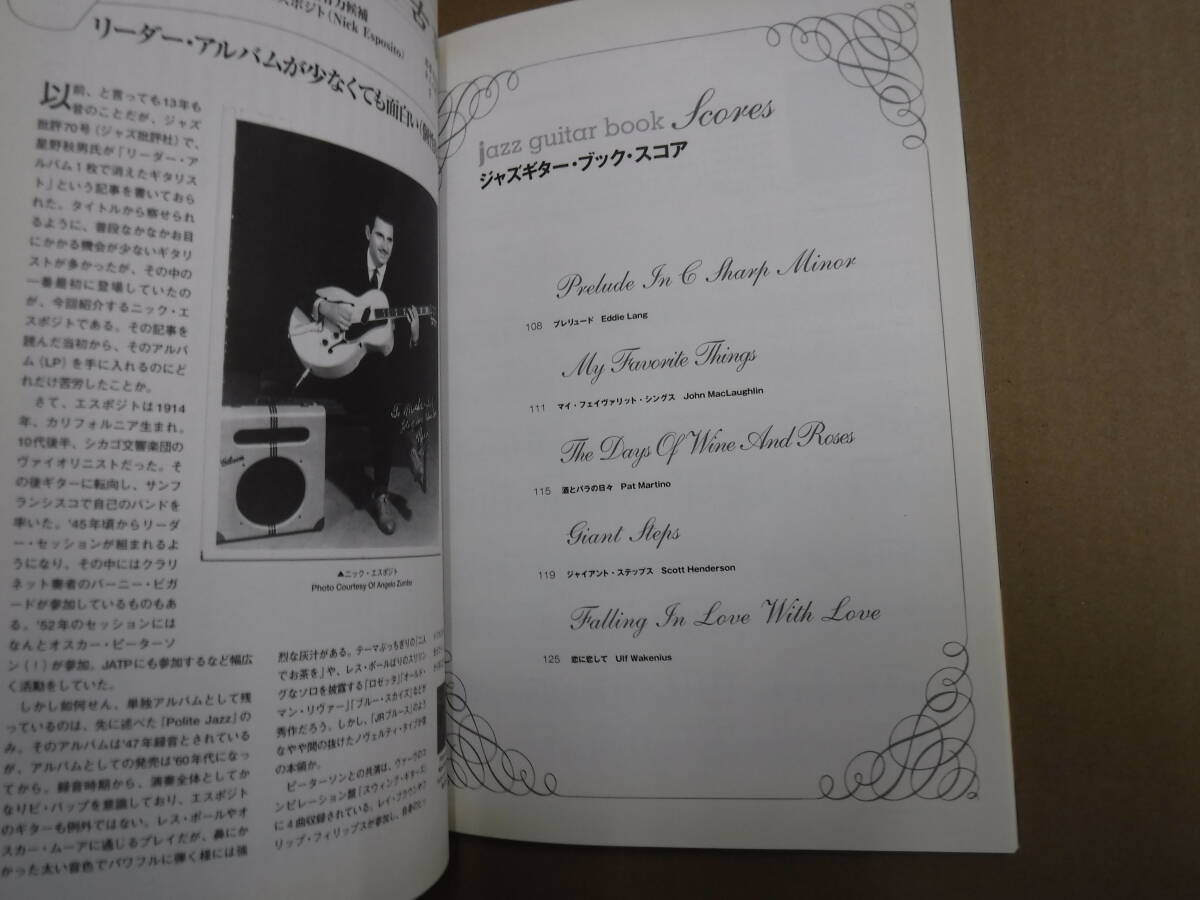 力候補
スポジト(Nick Esposito)
リーダー・アルバムが少なくても面白い
以前、と言っても13年も
昔のことだが、ジャズ
批評70号(ジャズ批評社)で、
星野秋男氏が「リーダー・ア
ルバム1枚で消えたギタリス
ト」という記事を書いておら
れた。タイトルから察せられ
るように、普段なかなかお目
にかかる機会が少ないギタリ
ストが多かったが、その中の
一番最初に登場していたの
が、今回紹介するニック・エ
スポジトである。その記事を
読んだ当初から、そのアルバ
ム(LP)を手に入れるのにど
れだけ苦労したことか。
さて、エスポジトは1914
年、カリフォルニア生まれ。
10代後半、シカゴ交響楽団の
ヴァイオリニストだった。そ
の後ギターに転向し、サンフ
ランシスコで自己のバンドを
率いた。'45年頃からリーダ
ー・セッションが組まれるよ
うになり、その中にはクラリ
ネット奏者のバーニー・ビガ
ードが参加しているものもあ
る。'52年のセッションには
なんとオスカー・ピーターソ
ン(!)が参加。JATPにも参加するなど幅広
く活動をしていた。
しかし如何せん、単独アルバムとして残
っているのは、先に述べた「Polite Jazz」の
み。そのアルバムは'47年録音とされている
が、アルバムとしての発売は'60年代になっ
てから。録音時期から、演奏全体としてか
なりビ・バップを意識しており、エスポジト
のギターも例外ではない。レス・ポールやオ
スカー・ムーアに通じるプレイだが、鼻にか
かった太い音色でパワフルに弾く様には強
Gibson
▲ニック・エスポジト
Photo Courtesy Of Angelo Zunto
烈な灰汁がある。テーマぶっちぎりの「二人
でお茶を」や、レス・ポールばりのスリリン
グなソロを披露する「ロゼッタ」「オールド・
マン・リヴァー」「ブルー・スカイズ」などが
秀作だろう。しかし、「JRブルース」のよう
なやや間の抜けたノヴェルティ・タイプが彼
の本領か。
ピーターソンとの共演は、ヴァーヴのコ
ンピレーション盤「スウィング・ギターズ」
に4曲収録されている。レイ・ブラウンやフ
リップ・フィリップスが参加し、
jazz guitar book Scores
ジャズギター・ブック・スコア
Prelude In C Sharp Minor
108 プレリュード Eddie Lang
My Favorite Things
111 マイ・フェイヴァリット・シングス John MacLaughlin
The Days Of Wine And Roses
115 酒とバラの日々 Pat Martino
Giant Steps
119 ジャイアント・ステップス Scott Henderson
Falling In Love With Love
125 恋に恋して Ulf Wakenius